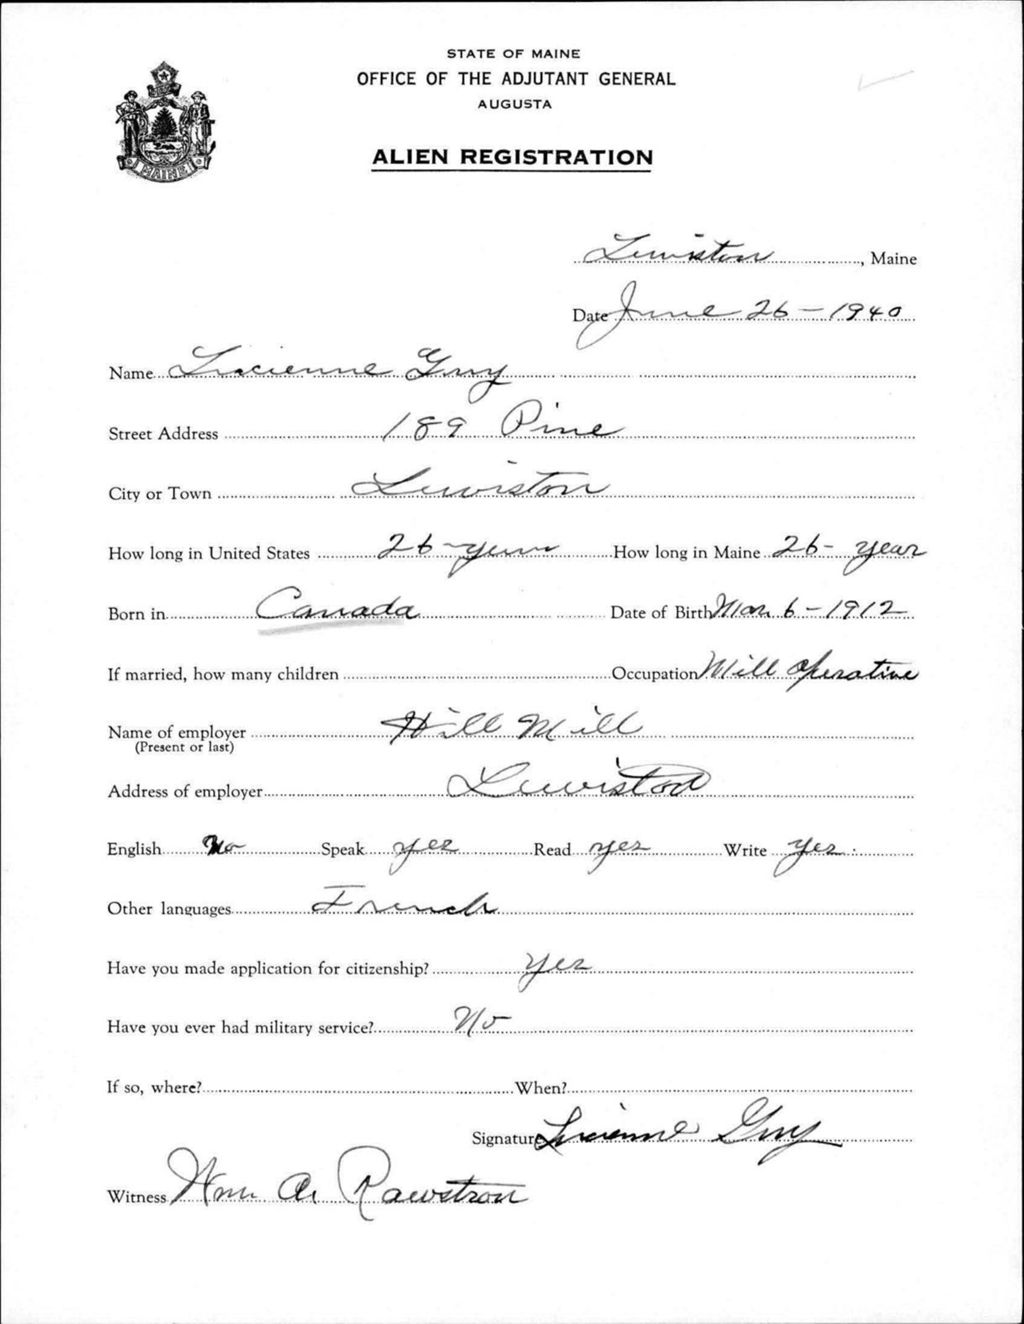 STATE OF MAINE
OFFICE OF THE ADJUTANT GENERAL
AUGUSTA
ALIEN REGISTRATION
MAINE
Lewiston, Maine
Date June 26-1940
Name Lucienne Guy
Street Address 189 Pine
City or Town Lewiston
How long in United States 26-years How long in Maine 26- year
Born in Canada Date of Birth Mar. 6-1912
If married, how many children Occupation Mill Operative
Name of employer Hill Mill
(Present or last)
Address of employer Lewiston
English No Speak yes Read yes Write yes.
Other languages French
Have you made application for citizenship? Yes
Have you ever had military service? No
If so, where? When?
Signature Lucienne Guy
Witness Wm. A. Rawstron